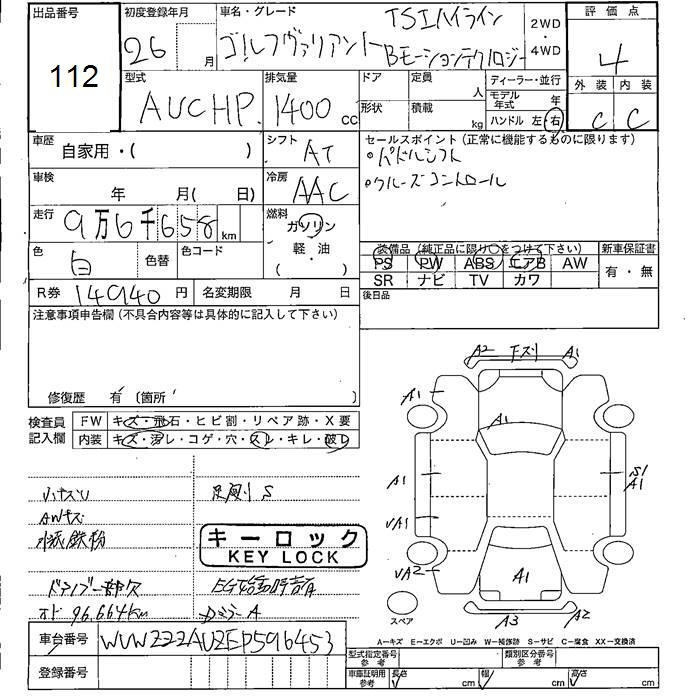 出品番号
112
初度登録年月
26 月
車名・グレード
ゴルフヴァリアント TSIハイライン
Bモーションテクノロジー
2WD
・
4WD
評価点
4
外装 内装
C C
型式
AUCHP.
排気量
1400 cc
ドア
形状
定員 人
積載 kg
ディーラー・並行
モデル年式 年
ハンドル 左・右
車歴
自家用・( )
シフト
AT
車検
年 月( 日)
冷房
AAC
走行
9万6千658 km
燃料
ガソリン
軽・油
・
色
白
色替
色コード
R券 14940 円
名変期限 月 日
セールスポイント(正常に機能するものに限ります)
・パドルシフト
・クルーズコントロール
装備品(純正品に限り○をつけて下さい)
PS PW ABS エアB AW
SR ナビ TV カワ
新車保証書
有・無
後日品
注意事項申告欄(不具合内容等は具体的に記入して下さい)
修復歴 有 (箇所
検査員記入欄
FW キズ・飛石・ヒビ割・リペア跡・X要
内装 キズ・汚レ・コゲ・穴・スレ・キレ・破レ
AWキズ
水坂鉄粉
ドアノブ一部欠
オド 96,664km
足廻りS
キーロック
KEY LOCK
EG始動時音有
DミラーA
A2 下スリ A1
A1
A1
A1
S1
A1
VA1
VA2
A1
スペア
A3 A2
A―キズ E―エクボ U―凹み W―補修跡 S―サビ C―腐食 XX―交換済
車台番号
WVWZZZAUZEP596453
登録番号
型式指定番号 参考
類別区分番号 参考
車庫証明用 参考
長さ cm
幅 cm
高さ cm